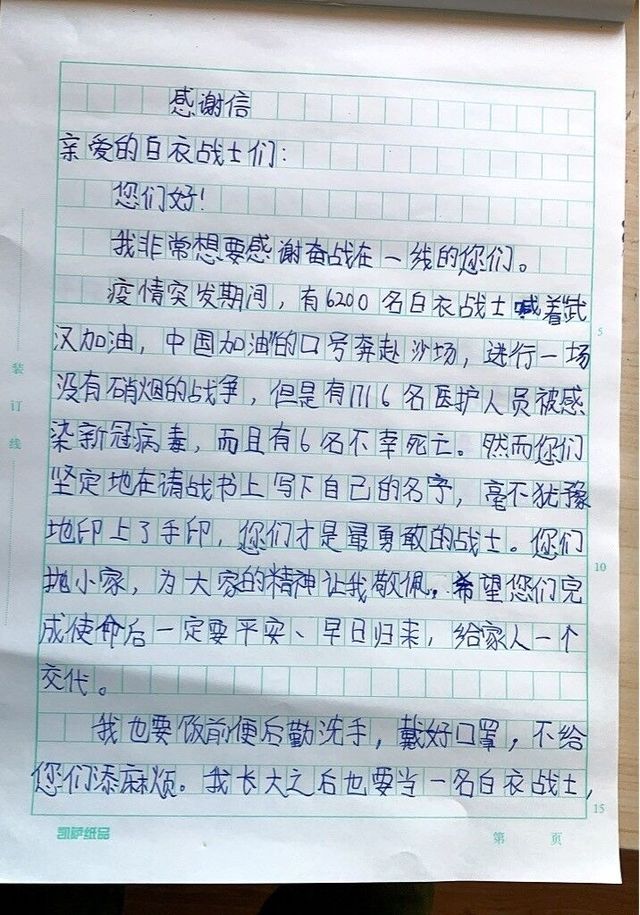 感谢信
亲爱的白衣战士们：
您们好！
我非常想要感谢奋战在一线的您们。
疫情突发期间，有6200名白衣战士喊着武
5
汉加油，中国加油"的口号奔赴沙场，进行一场
没有硝烟的战争，但是有1716名医护人员被感
染新冠病毒，而且有6名不幸死亡。然而您们
坚定地在请战书上写下自己的名字，毫不犹豫
地印上了手印，您们才是最勇敢的战士。您们
10
抛小家，为大家的精神让我敬佩，希望您们完
成使命后一定要平安、早日归来，给家人一个
交代。
我也要饭前便后勤洗手，戴好口罩，不给
您们添麻烦。我长大之后也要当一名白衣战士，
15
装订线
凯萨纸品
第 页